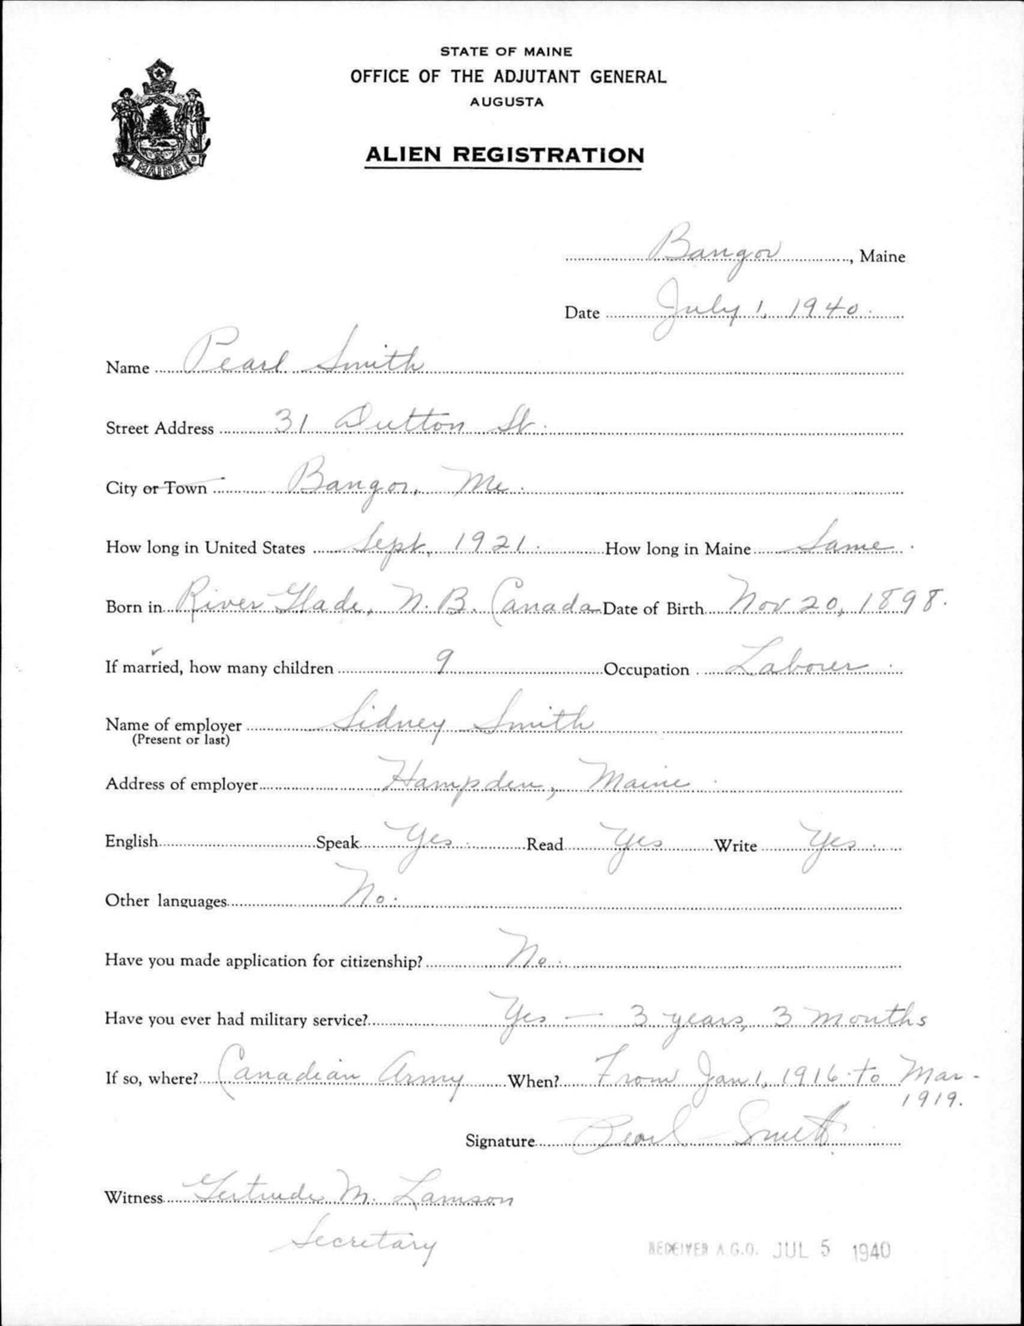 STATE OF MAINE
OFFICE OF THE ADJUTANT GENERAL
AUGUSTA
ALIEN REGISTRATION
MAINE
Bangor, Maine
Date July 1, 1940.
Name Pearl Smith
Street Address 31 Dutton St.
City or Town Bangor, Me.
How long in United States Sept, 1921. How long in Maine Same.
Born in River Glade, N. B. Canada Date of Birth Nov 20, 1898.
If married, how many children 9 Occupation Laborer
Name of employer Sidney Smith
(Present or last)
Address of employer Hampden, Maine.
English Speak Yes. Read Yes Write Yes.
Other languages No.
Have you made application for citizenship? No.
Have you ever had military service? Yes — 3 years, 3 months
If so, where? Canadian Army When? From Jan 1, 1916 to Mar-
1919.
Signature Pearl Smith
Witness Gertrude M. Lamson
Secretary
RECEIVED A.G.O. JUL 5 1940